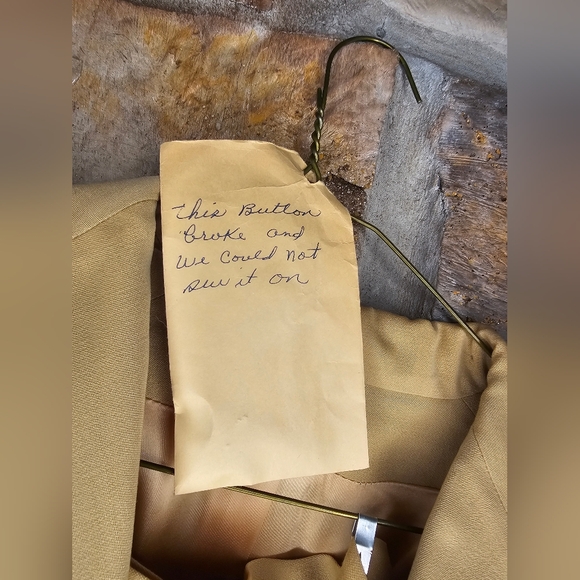 This Button
Broke and
We Could Not
sew it on